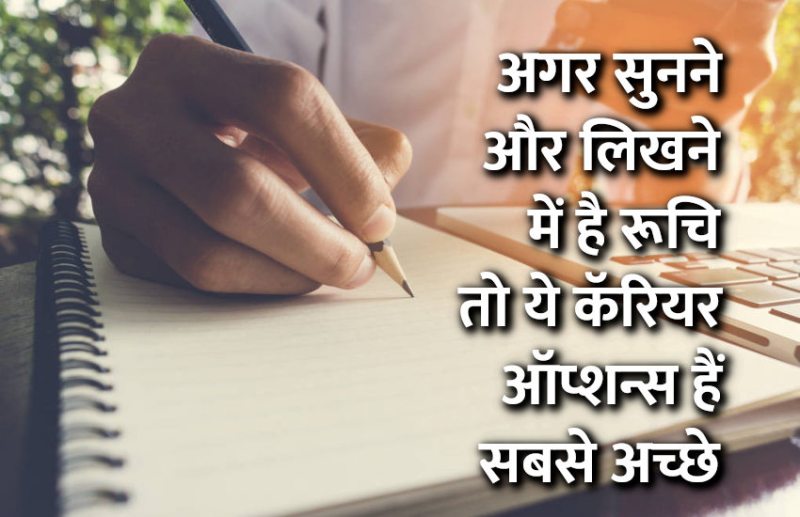 अगर सुनने
और लिखने
में है रूचि
तो ये कॅरियर
ऑप्शन्स हैं
सबसे अच्छे